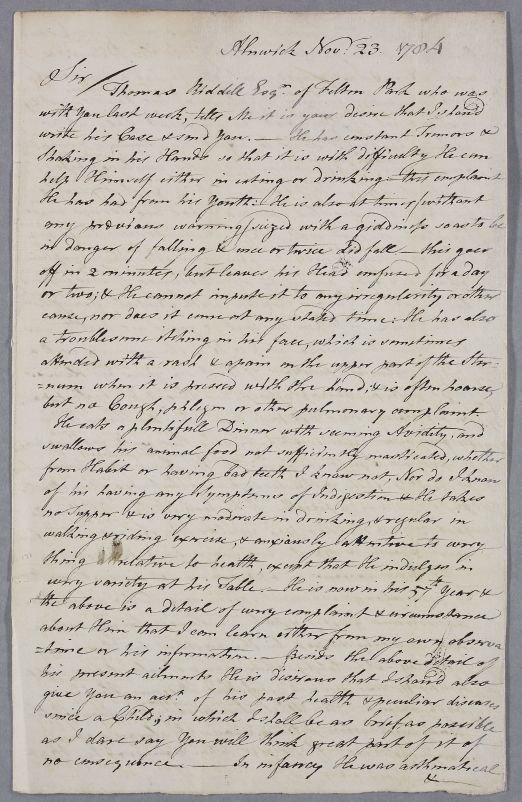 Alnwick Nov.r 23. 1784
Sir/
Thomas Riddell Esq.r of Felton Park who was
with You last week, tells Me it is your desire that I shou'd
write his Case & send You. — He has constant Tremors &
Shaking in his Hands so that it is with difficulty He can
help Himself either in eating or drinking this complaint
He has had from his Youth: He is also at times (without
any previous warning) seized with a giddiness so as to be
in danger of falling & once or twice did fall — this goes
off in 2 minutes, but leaves his Head confused for a day
or two; & He cannot impute it to any irregularity or other
cause, nor does it come at any stated time: He has also
a troublesome itching in his face, which is sometimes
attended with a rash & a pain in the upper part of the Ster-
=num when it is pressed with the hand; & is often hoarse,
but no Cough, phlegm or other pulmonary complaint
He eats a plentifull Dinner with seeming Avidity, and
swallows his animal food not sufficiently masticated, whether
from Habit or having bad teeth I know not, Nor do I know
of his having any Symptoms of Indigestion & He takes
no Supper & is very moderate in drinking, & regular in
walking & riding exercise, & anxiously attentive to every
thing relative to health, except that He indulges in
every variety at his Table. — He is now in his 57th Year &
the above is a detail of every complaint & circumstance
about Him that I can learn either from my own observa
=tions or his information. — Besids the above detail of
his present ailments He is desirous that I shou'd also
give You an acc.t of his past health & peculiar diseases
since a Child; in which I shall be as brief as possible
as I dare say You will think great part of it of
no consequence. — In infancy He was asthmatical
&